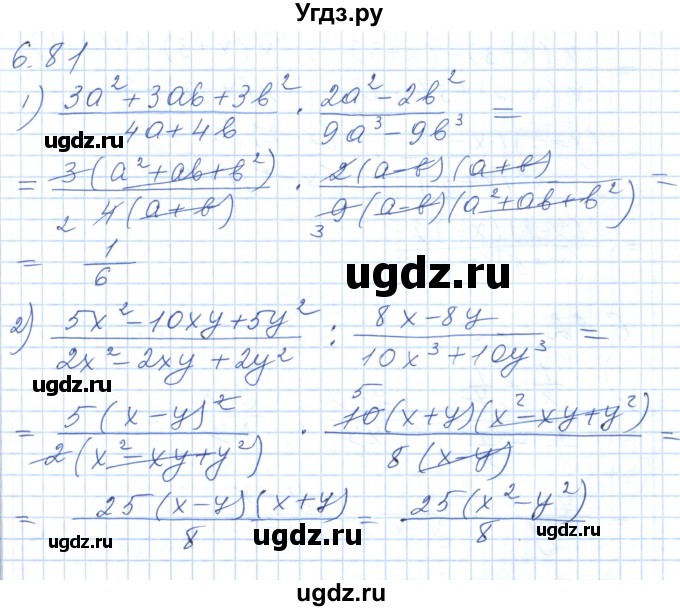 Угдз.ру
6.81
1) (3a² + 3ab + 3b²)/(4a + 4b) · (2a² - 2b²)/(9a³ - 9b³) =
угдз.ru
угдз.ru
= 3(a² + ab + b²)/2 4(a + b) · 2(a - b)(a + b)/3 9(a - b)(a² + ab + b²) =
= 1/6
ugdz.ru
2) (5x² - 10xy + 5y²)/(2x² - 2xy + 2y²) : (8x - 8y)/(10x³ + 10y³) =
ugdz.ru
ugdz.ru
= 5(x - y)²/2(x² - xy + y²) · 5 10(x + y)(x² - xy + y²)/8(x - y) =
= 25(x - y)(x + y)/8 = 25(x² - y²)/8
ugdz.ru
ugdz.ru
ugdz.ru